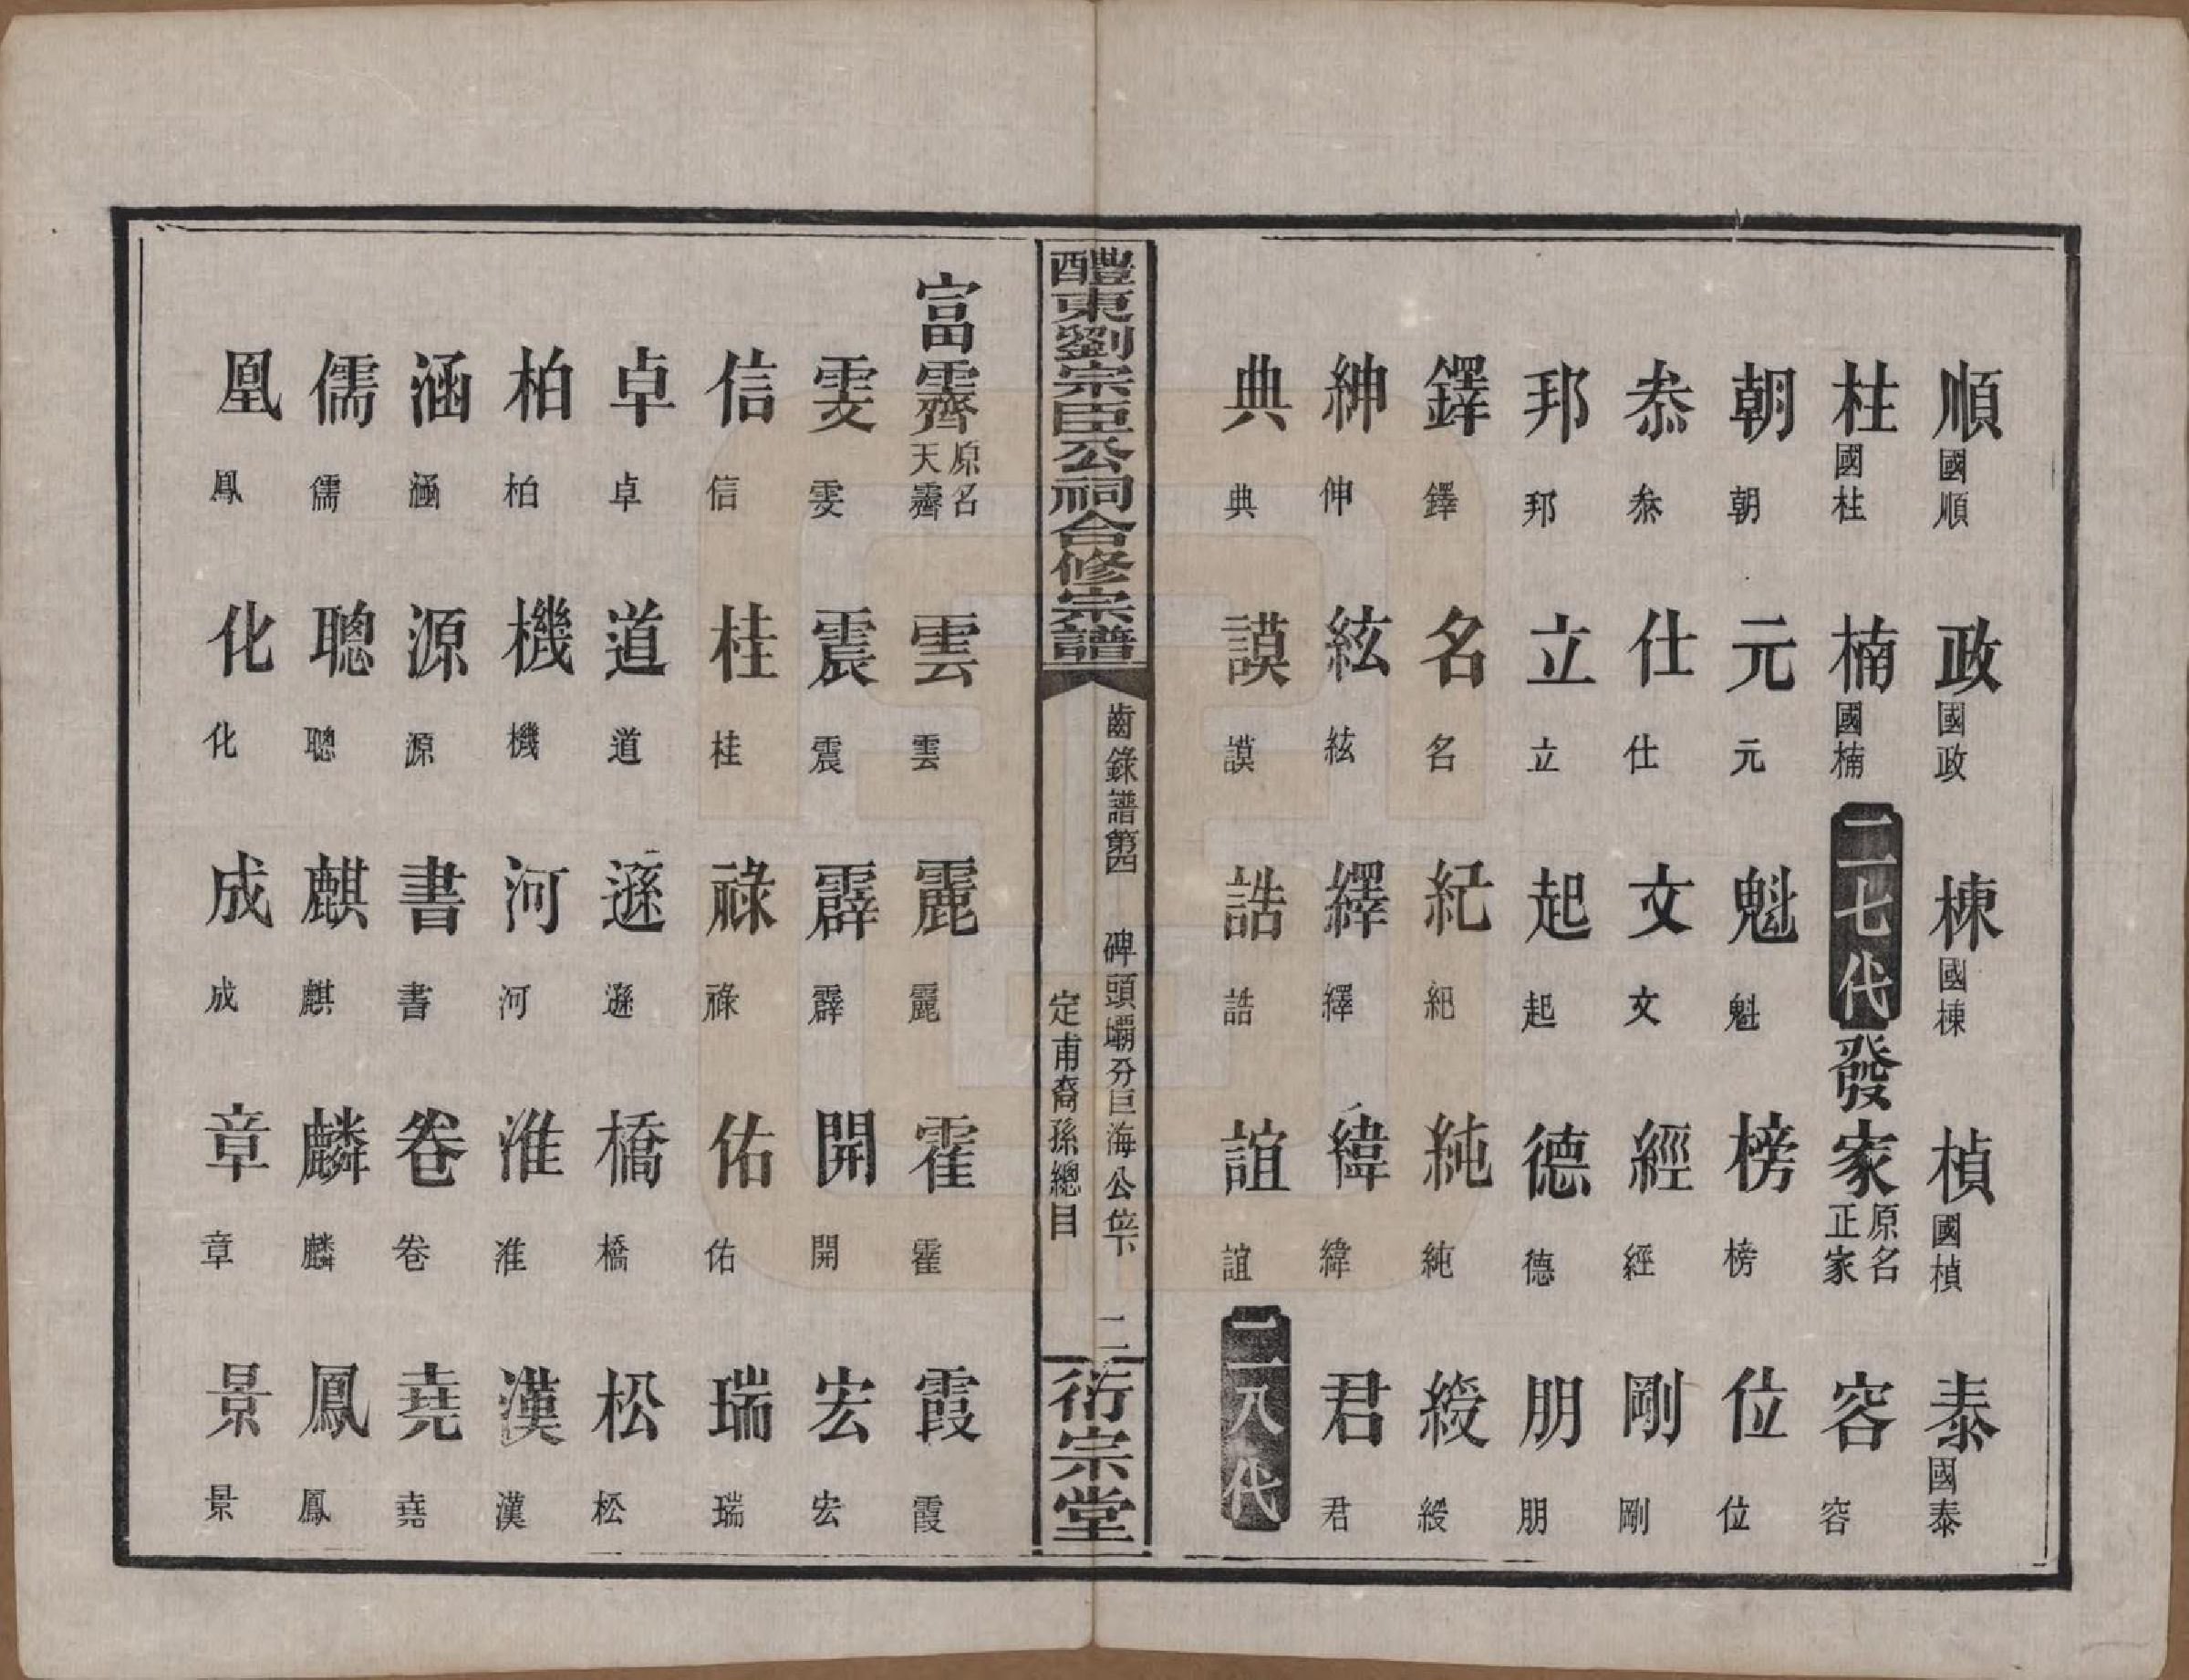 順國順 政國政 棟國棟 楨國楨 泰國泰
柱國柱 楠國楠 二七代 發家原名正家 容容
朝朝 元元 魁魁 榜榜 位位
叅叅 仕仕 文文 經經 剛剛
邦邦 立立 起起 德德 朋朋
鐸鐸 名名 紀紀 純純 綬綬
紳伸 絃絃 繹繹 緯緯 君君
典典 謨謨 誥誥 誼誼 二八代
醴東劉宗臣公祠合修宗譜
齒錄譜第四 碑頭壩分巨海公位下
定甫裔孫總目
二
衍宗堂
富霽原名天霽 雲雲 麗 霍霍 霞霞
雯雯 震震 霹霹 開開 宏宏
信信 桂桂 祿祿 佑佑 瑞瑞
卓卓 道道 遜遜 橋橋 松松
柏柏 機機 河河 淮淮 漢漢
涵涵 源源 書書 卷卷 堯堯
儒儒 聰聰 麒麒 麟麟 鳳鳳
凰鳳 化化 成成 章章 景景